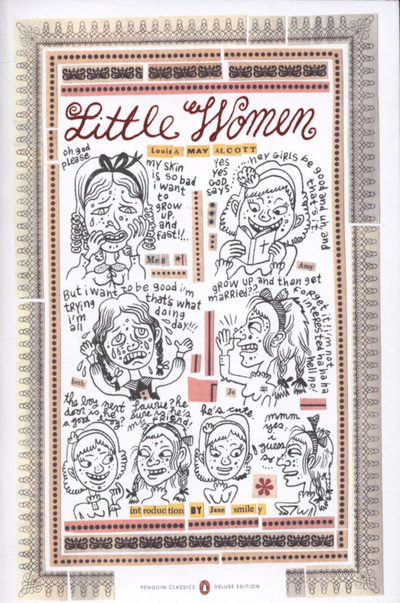 Little Women
Louisa MAY ALCOTT
oh god
please
my skin
is so bad
i want
to
grow
up,
and
fast!!..
Meg *!
yes
yes
GOD
says
...hey GiRLS be
good and uh and
that's it.
Amy
But i want to be good i'm
trying that's what
i'm doing
all day!!!
beth
grow up and then get
married??
forget it! i'm not
interested ha ha ha
hell no!
Jo
the boy next
door is he
a good boy?
Laurie? he
sure is, he's
my friend!
he's cute
mmm
yes,
i
guess
so
introduction BY Jane smiley
PENGUIN CLASSICS DELUXE EDITION